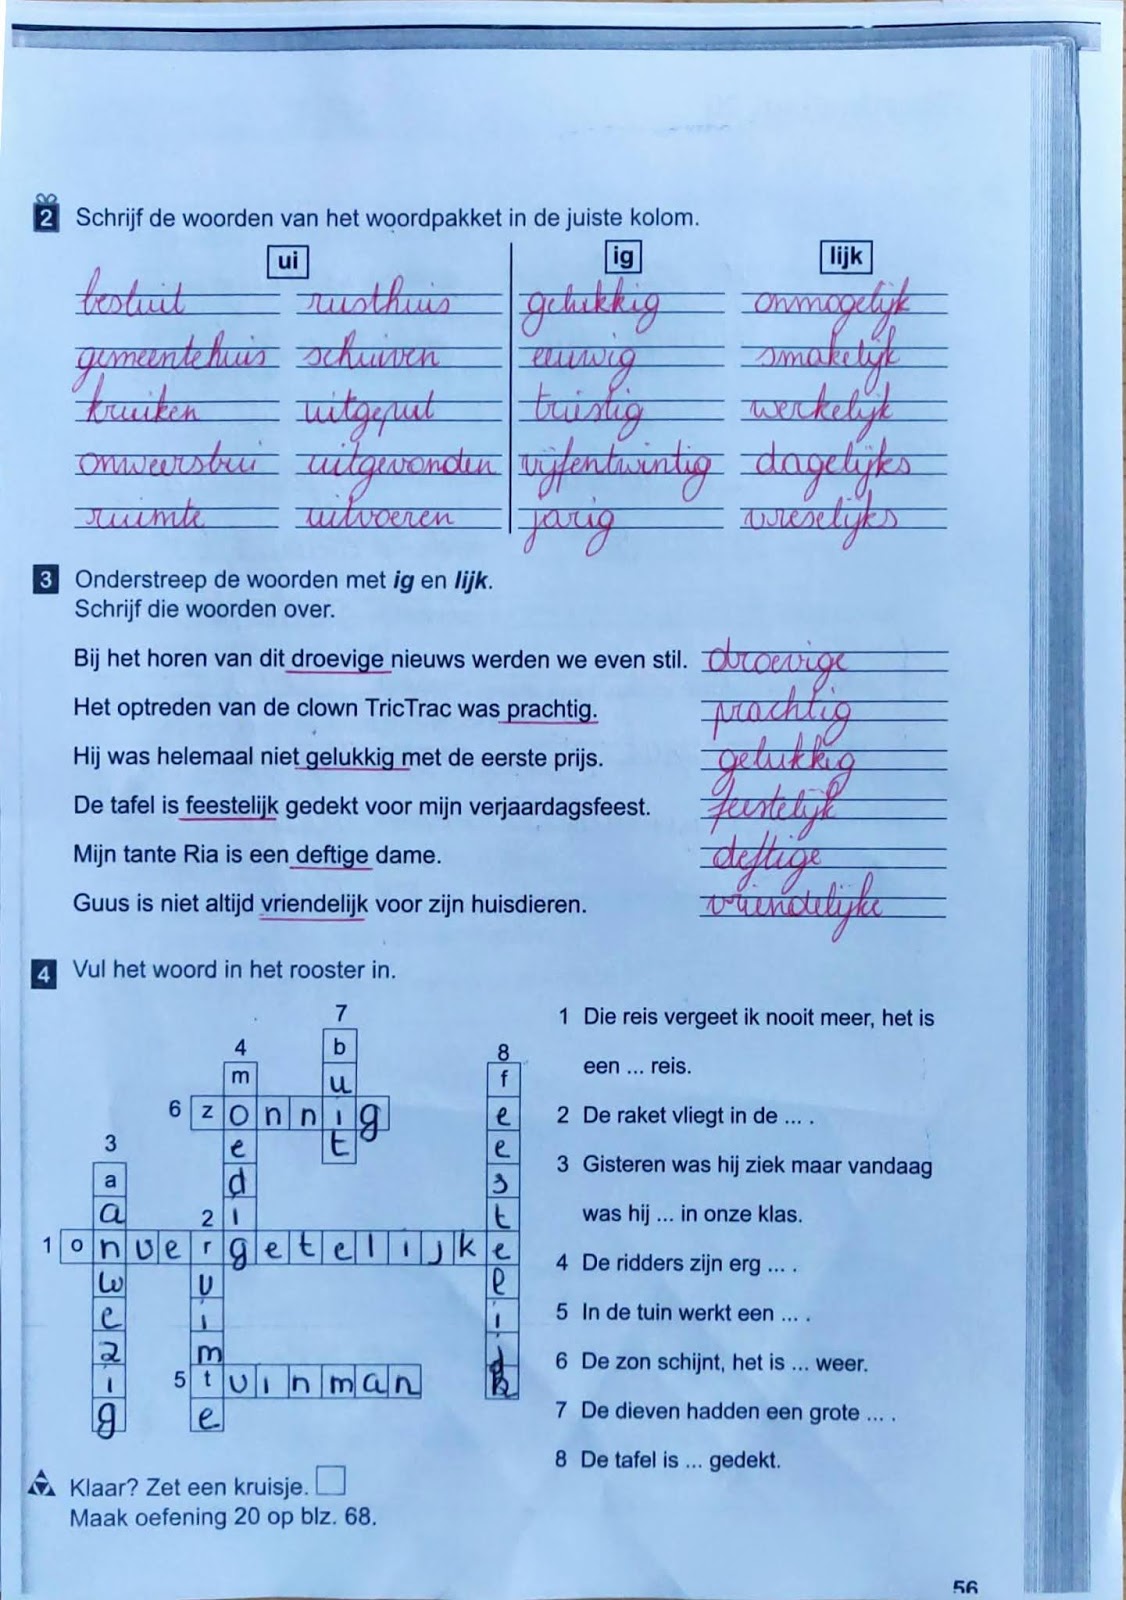 2 Schrijf de woorden van het woordpakket in de juiste kolom.
ui ig lijk
besluit rusthuis gelukkig onmogelijk
gemeentehuis schuiven eeuwig smakelijk
kruiken uitgeput truistig werkelijk
onweersbui uitgevonden vijfentwintig dagelijks
ruimte uitvoeren jarig vreselijks
3 Onderstreep de woorden met ig en lijk.
Schrijf die woorden over.
Bij het horen van dit droevige nieuws werden we even stil. droevige
Het optreden van de clown TricTrac was prachtig. prachtig
Hij was helemaal niet gelukkig met de eerste prijs. gelukkig
De tafel is feestelijk gedekt voor mijn verjaardagsfeest. feestelijk
Mijn tante Ria is een deftige dame. deftige
Guus is niet altijd vriendelijk voor zijn huisdieren. vriendelijke
4 Vul het woord in het rooster in.
1 onvergetelijke
2 ruimte
3 aanwezig
4 moedig
5 tuinman
6 zonnig
7 buit
8 feestelijk
1 Die reis vergeet ik nooit meer, het is
een ... reis.
2 De raket vliegt in de ... .
3 Gisteren was hij ziek maar vandaag
was hij ... in onze klas.
4 De ridders zijn erg ... .
5 In de tuin werkt een ... .
6 De zon schijnt, het is ... weer.
7 De dieven hadden een grote ... .
8 De tafel is ... gedekt.
Klaar? Zet een kruisje.
Maak oefening 20 op blz. 68.
56